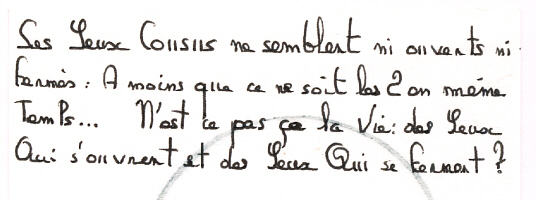 Ses Yeux Cousus ne semblent ni ouverts ni
fermés : A moins que ce ne soit les 2 en même
Temps... N'est ce pas ça la Vie : des Yeux
Qui s'ouvrent et des Yeux Qui se ferment ?